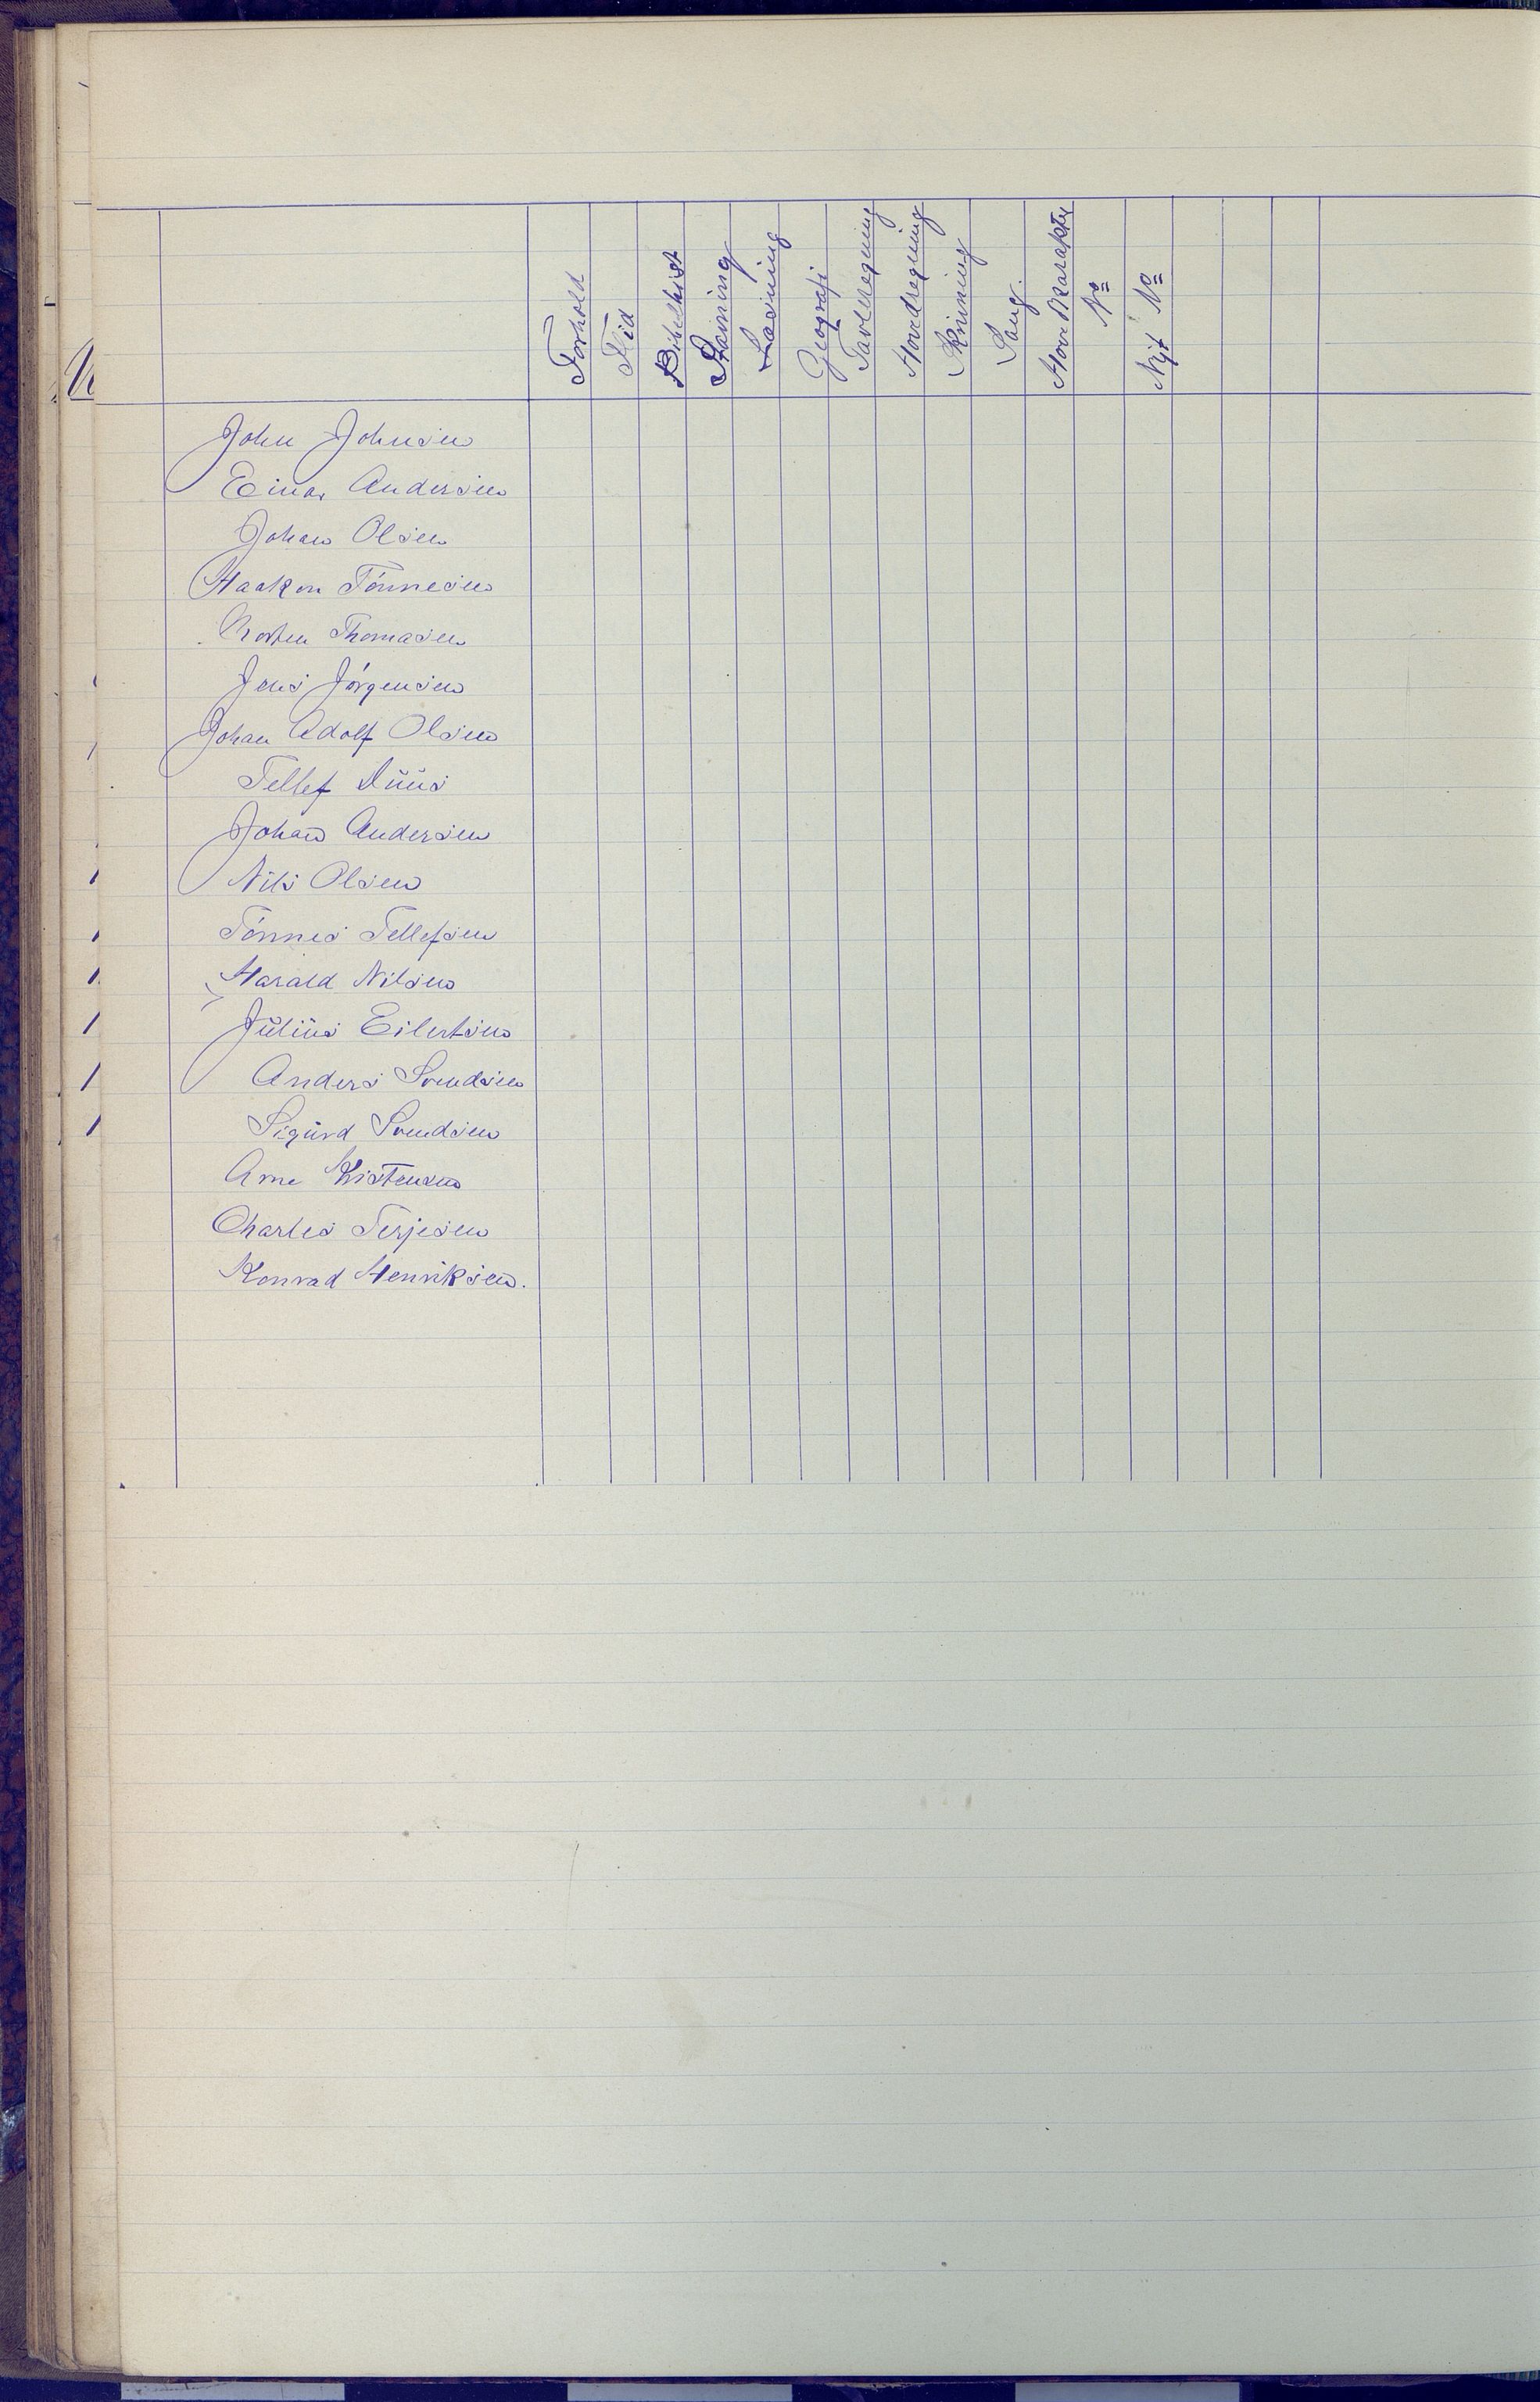 Forhold
Flid
Bibelhist
Staining
Læsning
Geografi
Tavleregning
Hovedregning
Skrivning
Sang.
Hovedkarakter
No
Nyt No
John Johnsen
Einar Andersen
Johan Olsen
Haakon Tönnesen
Thomasen
Jens Jörgensen
Johan Adolf Olsen
Tellef Duus
Johan Andersen
Nils Olsen
Tönnes Tellefsen
Harald Nilsen
Julius Eilertsen
Anders Svendsen
Sigurd Svendsen
Arne Kristensen
Charles Terjesen
Konrad Henriksen.